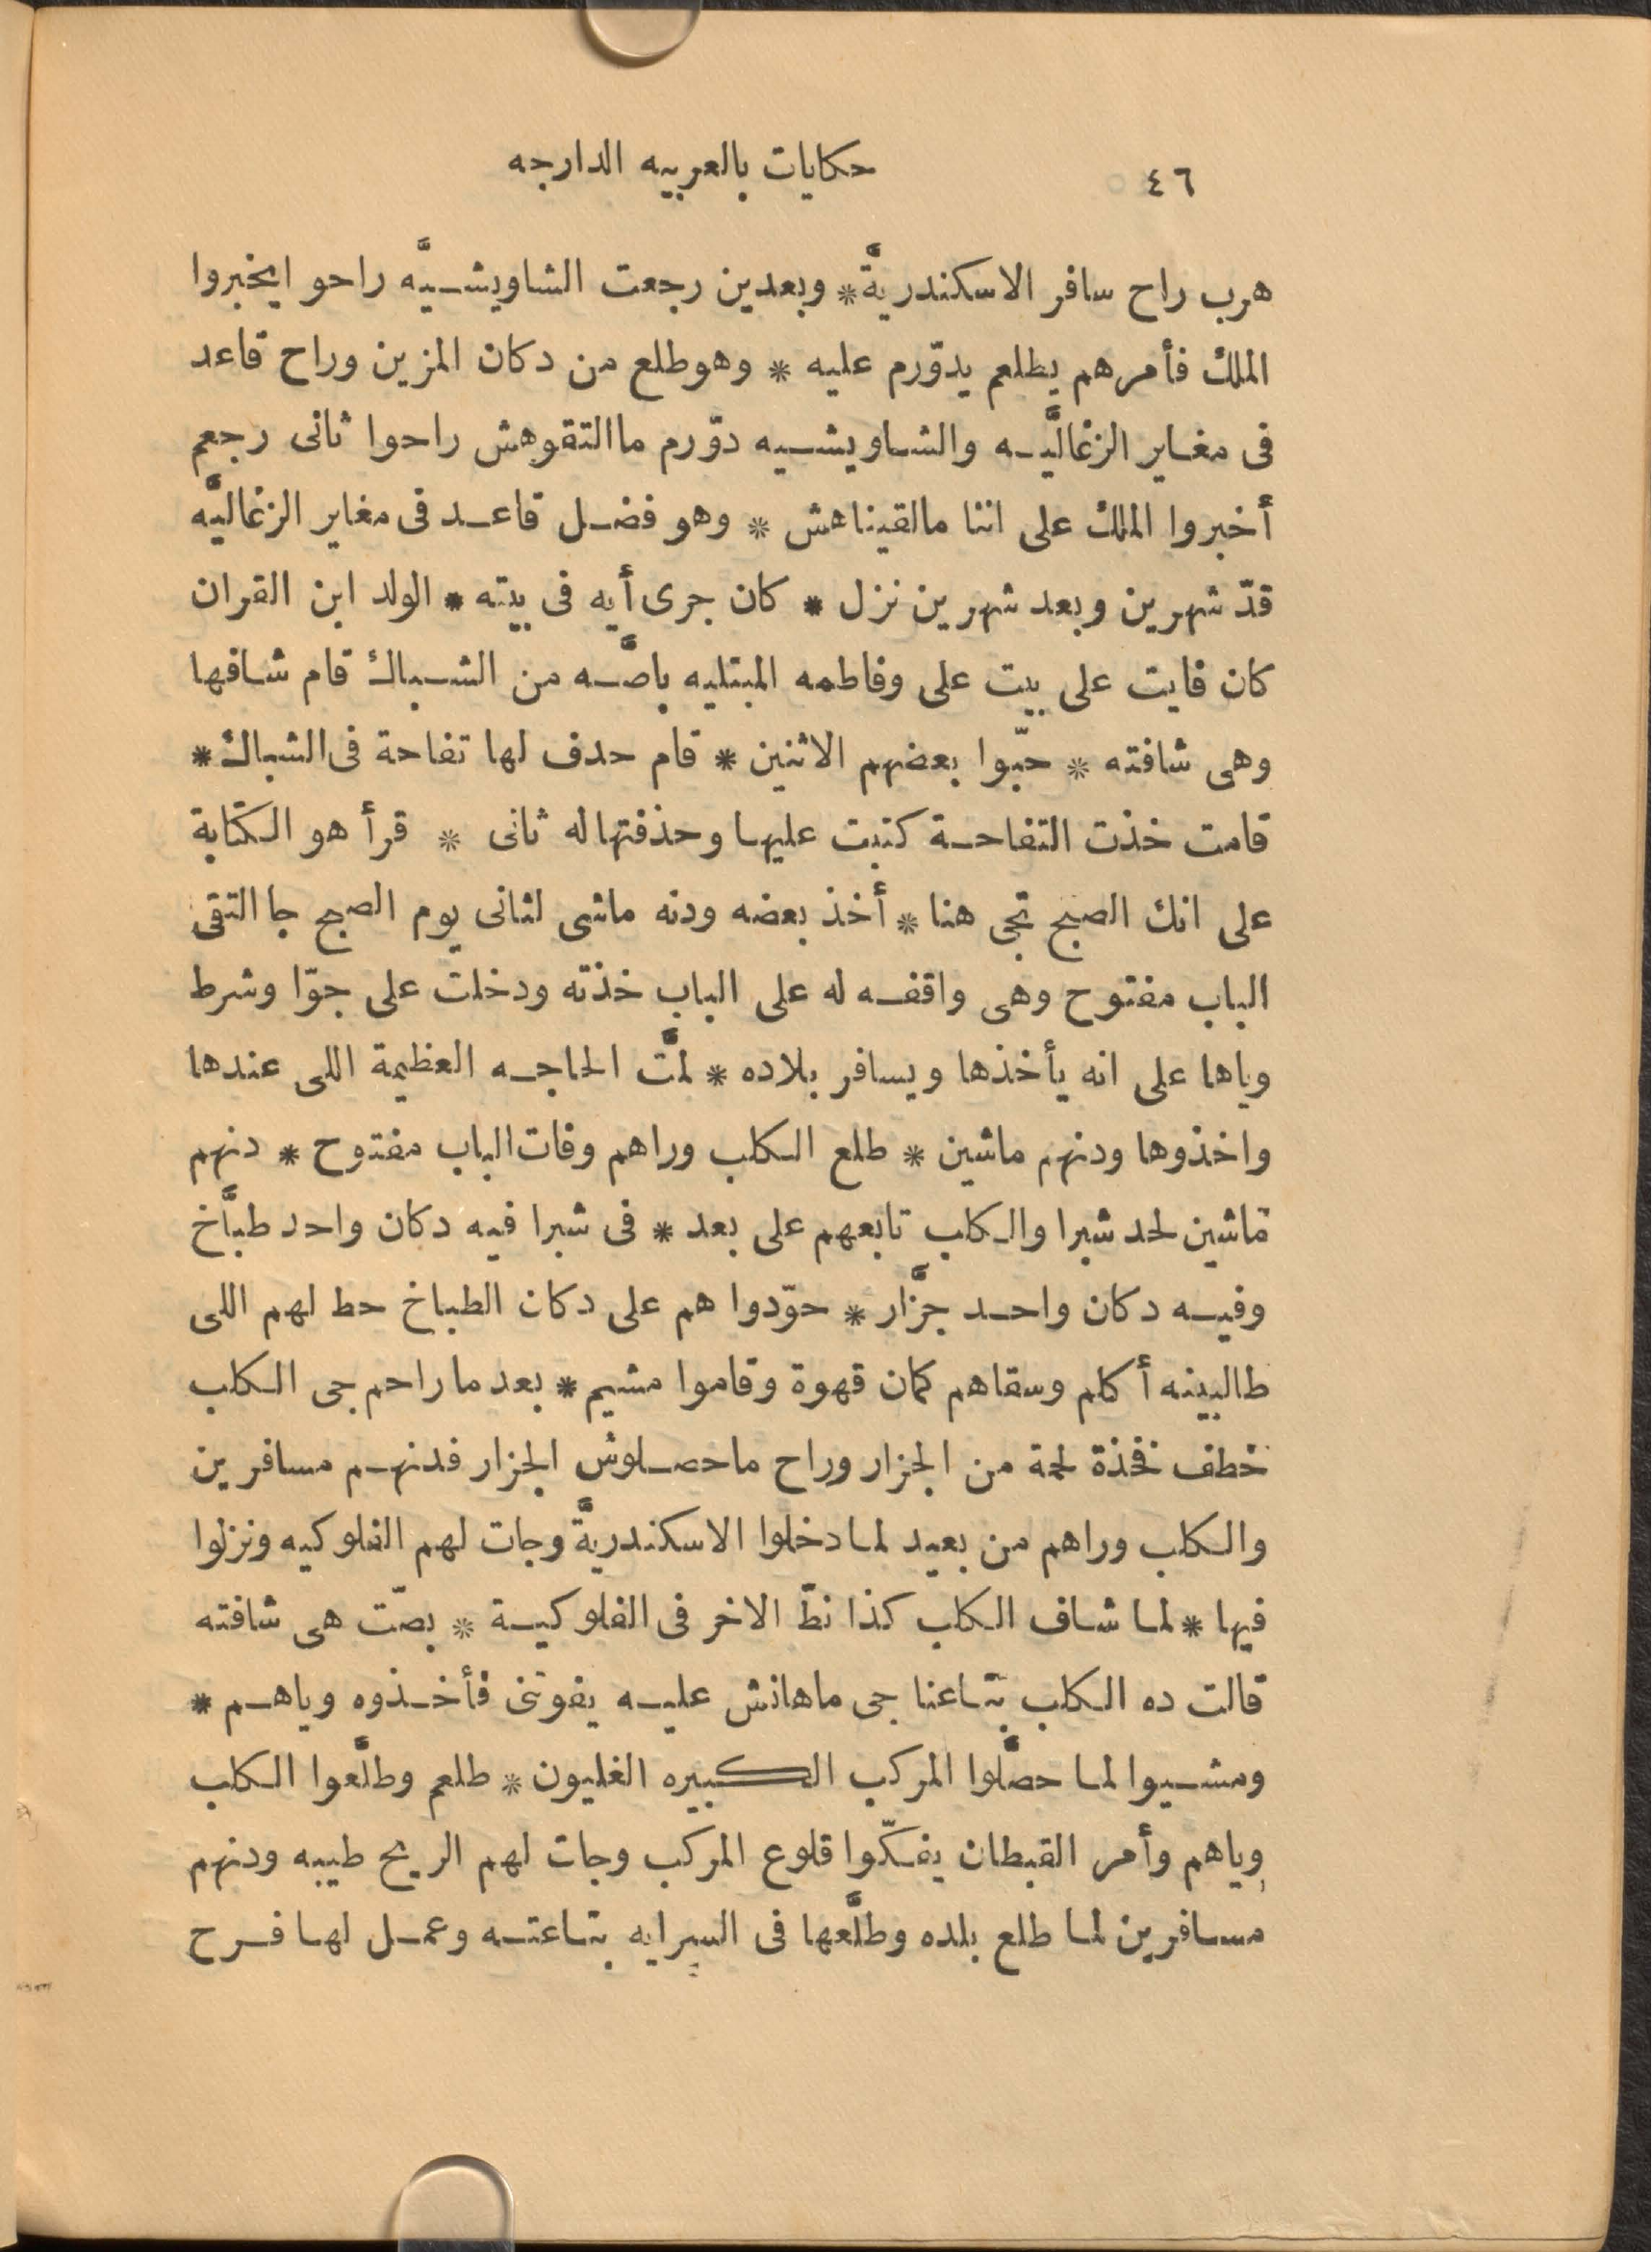 ٤٦ حكايات بالعربيه الدارجه
هرب راح سافر الاسكندريَّة * وبعدين رجعت الشاويشيَّه راحو ايخبروا
الملك فأمرهم يطلعم يدوّرم عليه * وهوطلع من دكان المزين وراح قاعد
فى مغاير الزغاليَّه والشاويشيه دوّرم ماالتقوهش راحوا ثانى رجعم
أخبروا الملك على اننا مالقيناهش * وهو فضل قاعد فى مغاير الزغاليَّه
قدّ شهرين وبعد شهرين نزل * كان جرى أيه فى بيته * الولد ابن القران
كان فايت على بيت على وفاطمه المبتليه باصَّه من الشباك قام شافها
وهى شافته * حبّوا بعضهم الاثنين * قام حدف لها تفاحة فى الشباك *
قامت خذت التفاحة كتبت عليها وحذفتها له ثانى * قرأ هو الكتابة
على انك الصبح تجى هنا * أخذ بعضه ودنه ماشى لثانى يوم الصبح جا التقى
الباب مفتوح وهى واقفه له على الباب خذته ودخلت على جوّا وشرط
وياها على انه يأخذها ويسافر بلاده * لمَّت الحاجه العظيمة اللى عندها
واخذوها ودنهم ماشين * طلع الكلب وراهم وفات الباب مفتوح * دنهم
ماشين لحد شبرا والكلب تابعهم على بعد * فى شبرا فيه دكان واحد طبَّاخ
وفيه دكان واحد جزَّار * حوّدوا هم على دكان الطباخ حط لهم اللى
طالبينه أكلم وسقاهم كمان قهوة وقاموا مشيم * بعد ماراحم جى الكلب
خطف فخذة لحمة من الجزار وراح ماحصلوش الجزار فدنهم مسافرين
والكلب وراهم من بعيد لما دخلوا الاسكندريَّة وجات لهم الفلوكيه ونزلوا
فيها * لما شاف الكلب كذا نطّ الاخر فى الفلوكية * بصّت هى شافته
قالت ده الكلب بتاعنا جى ماهانش عليه يفوتنى فأخذوه وياهم *
ومشيوا لما حصَّلوا المركب الكبيره الغليون * طلعم وطلَّعوا الكلب
وياهم وأمر القبطان يفكّوا قلوع المركب وجات لهم الريح طيبه ودنهم
مسافرين لما طلع بلده وطلَّعها فى السرايه بتاعته وعمل لها فرح